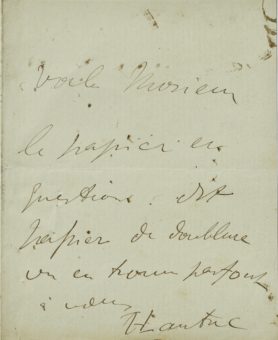 Voila Monsieur
le papier en
question. dit
papier de doublure
on en trouve partout
à
HLautrec